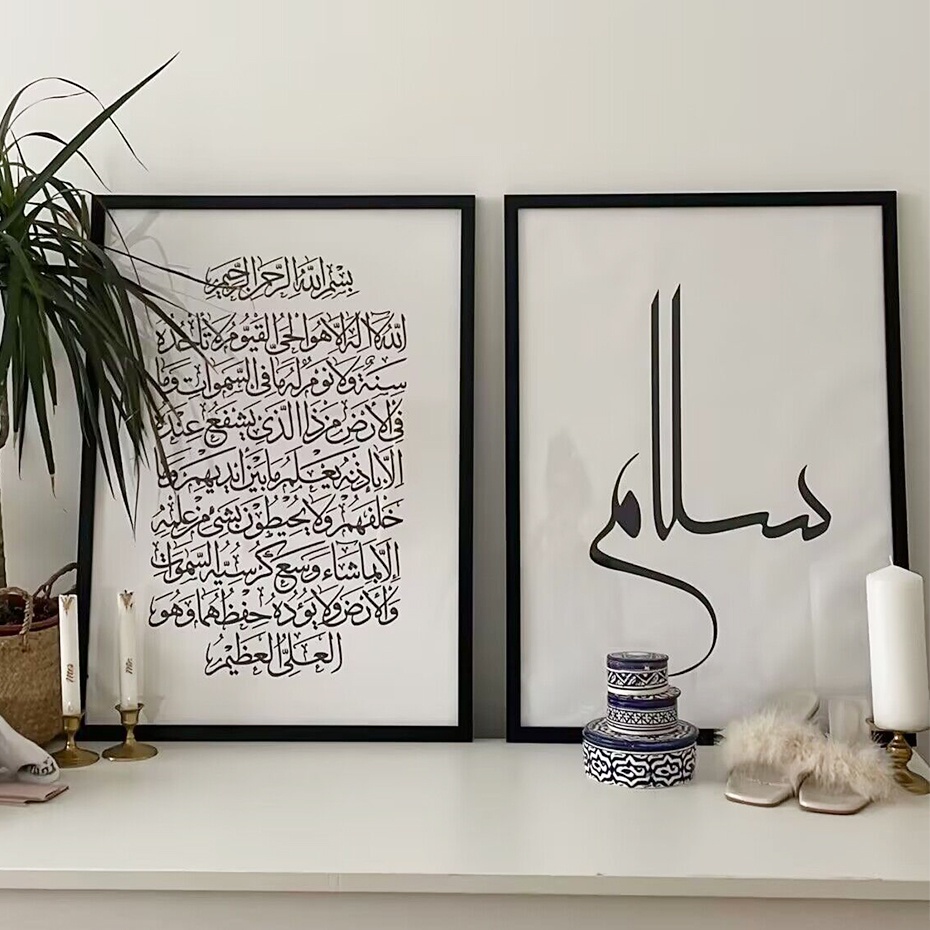 بِسْمِ اللهِ الرَّحْمٰنِ الرَّحِيْمِ
اللهُ لَا اِلٰهَ اِلَّا هُوَ الْحَيُّ الْقَيُّوْمُ لَا تَأْخُذُهٗ
سِنَةٌ وَلَا نَوْمٌ لَهٗ مَا فِي السَّمٰوَاتِ وَمَا
فِي الْأَرْضِ مَنْ ذَا الَّذِيْ يَشْفَعُ عِنْدَهٗ
اِلَّا بِاِذْنِهٖ يَعْلَمُ مَا بَيْنَ اَيْدِيْهِمْ وَمَا
خَلْفَهُمْ وَلَا يُحِيْطُوْنَ بِشَيْءٍ مِنْ عِلْمِهٖ
اِلَّا بِمَا شَاءَ وَسِعَ كُرْسِيُّهُ السَّمٰوَاتِ
وَالْأَرْضَ وَلَا يَؤُدُهٗ حِفْظُهُمَا وَهُوَ
الْعَلِيُّ الْعَظِيْمُ
سلام
Mrs
Mr